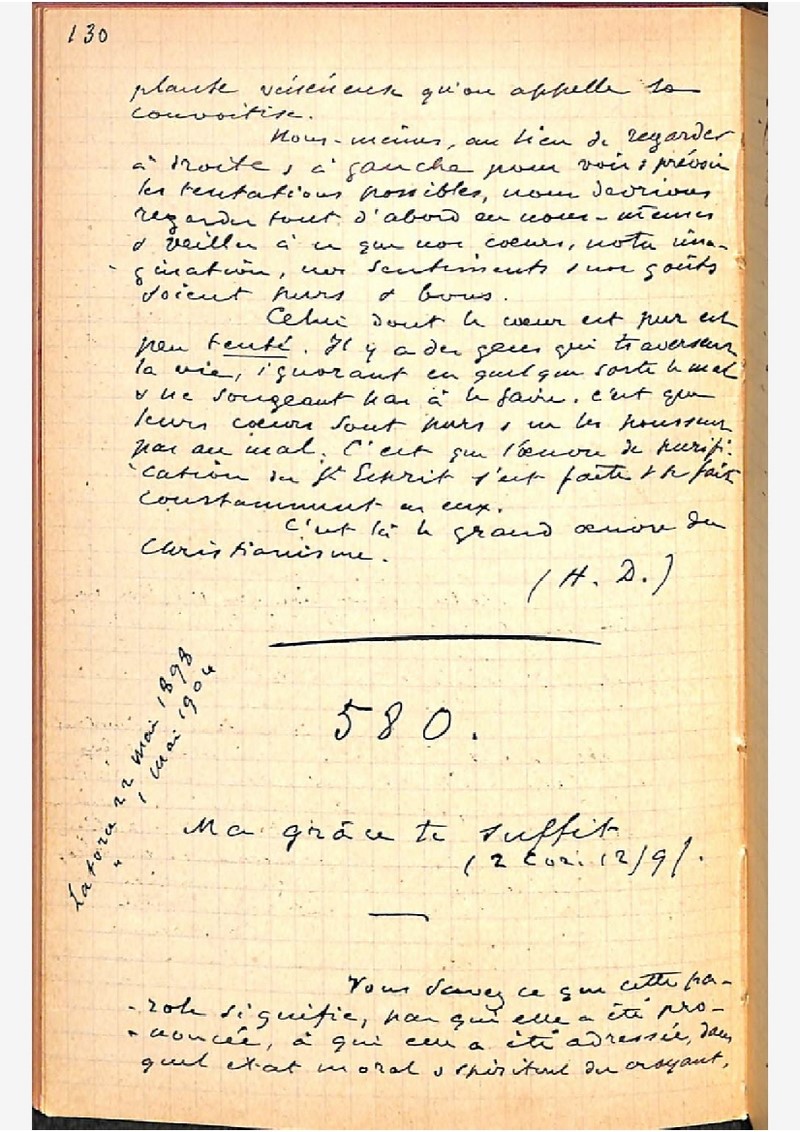 130
plante vénéneuse qu'on appelle la
convoitise.
Nous-mêmes, au lieu de regarder
à droite & à gauche pour voir & prévoir
les tentations possibles, nous devrions
regarder tout d'abord en nous-mêmes
& veiller à ce que nos coeurs, notre ima-
gination, nos sentiments & nos goûts
soient purs & bons.
Celui dont le coeur est pur est
peu tenté. Il y a des gens qui traversent
la vie, ignorant en quelque sorte le mal
& ne songeant pas à le faire. c'est que
leurs coeurs sont purs & ne les poussent
pas au mal. C'est que l'oeuvre de purifi-
cation du St Esprit s'est faite & se fait
constamment en eux.
C'est là la grand oeuvre du
Christianisme.
(H. D.)
Latour 22 mai 1898
" 1 mai 1904
580.
Ma grâce te suffit
(2 Cor. 12/9/.
Vous savez ce que cette pa-
role signifie, par qui elle a été pro-
noncée, à qui elle a été adressée, dans
quel état moral & spirituel du croyant,